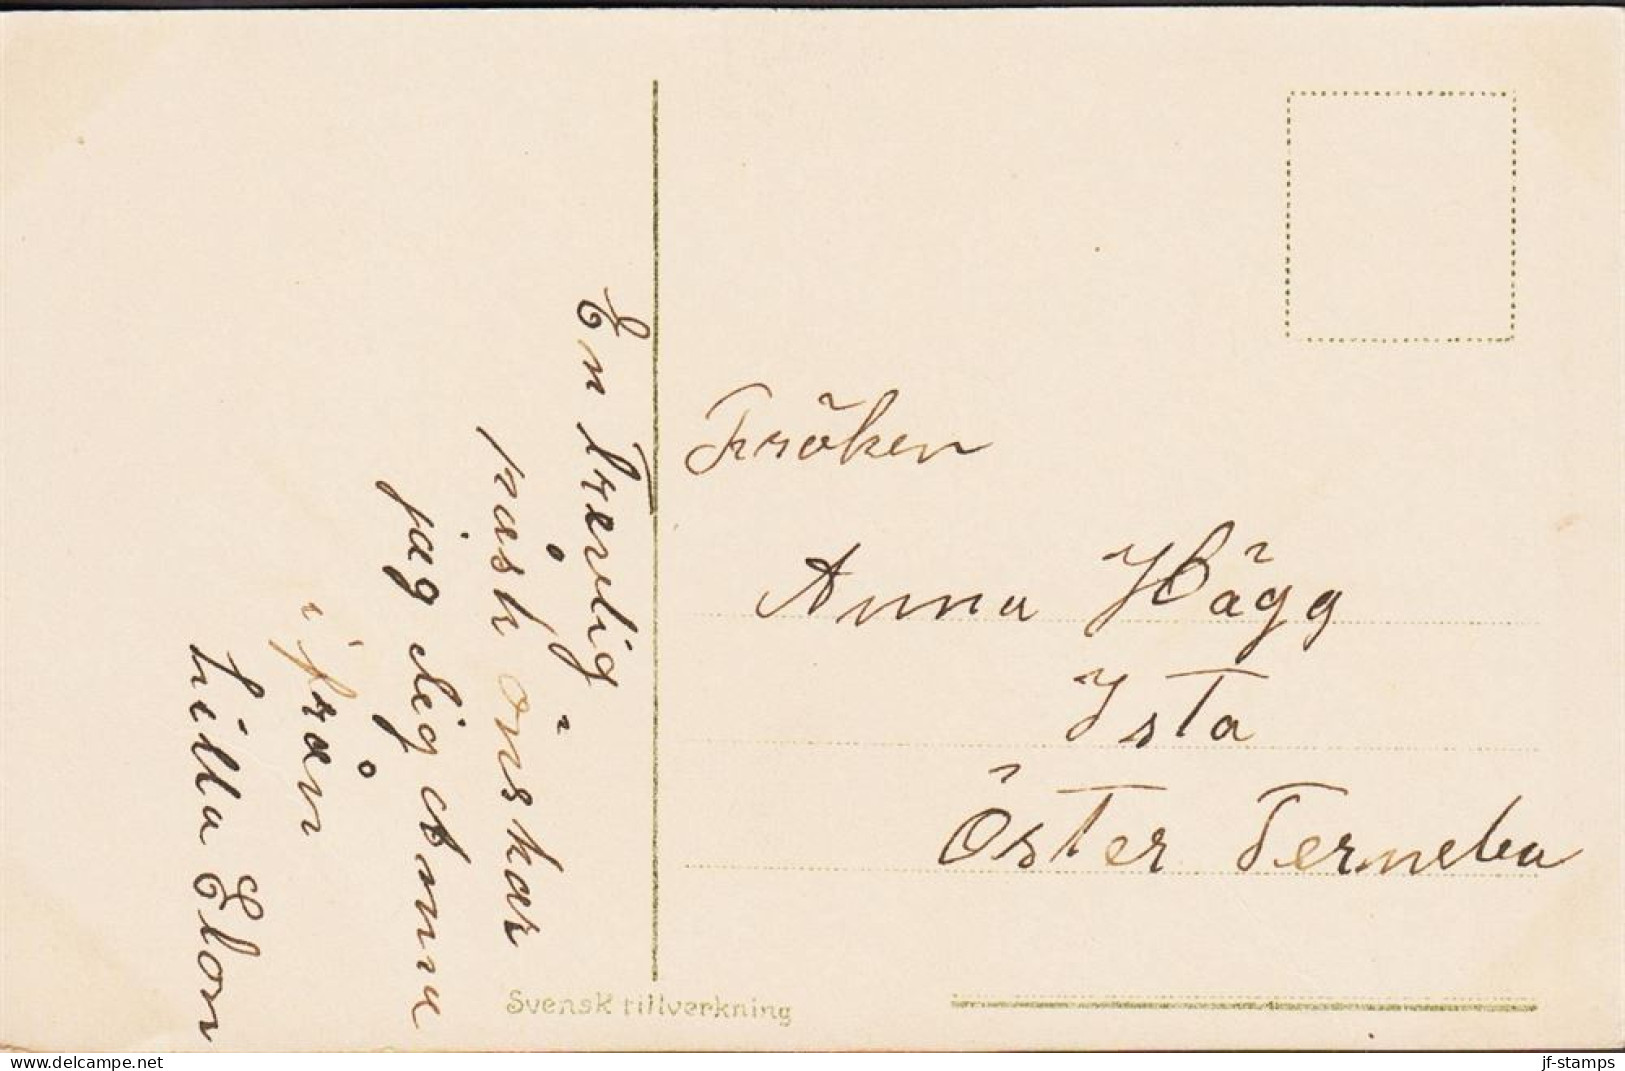 En trevlig
påsk önskar
jag dig Anna
ifrån
Lilla Elon
Fröken
Anna Hägg
Ysta
Öster Ferneba
Svensk tillverkning
www.delcampe.net
jf-stamps